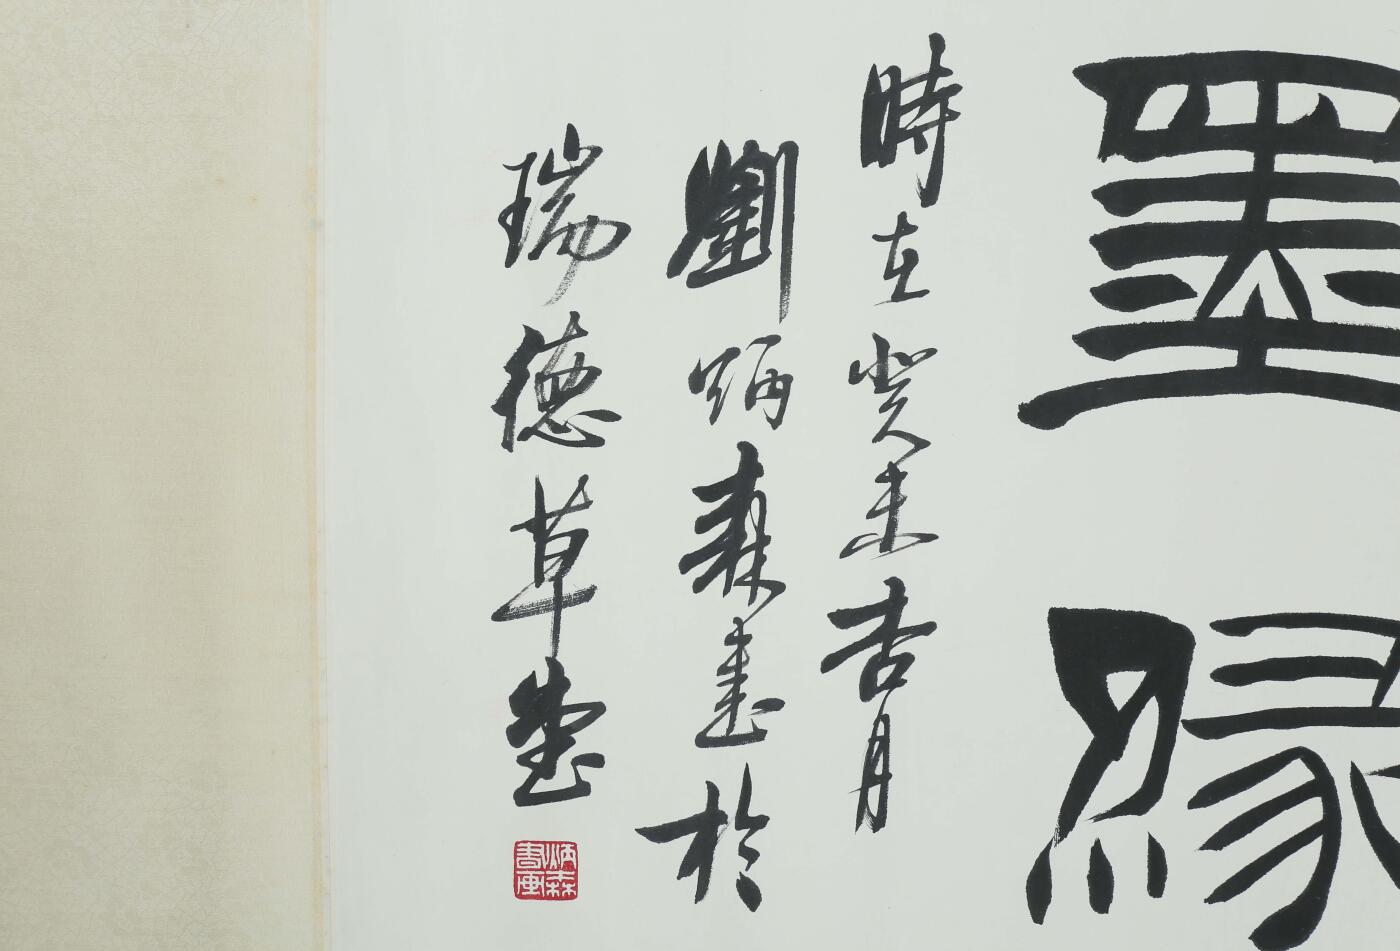 墨缘
時在癸未杏月
劉炳森書於
瑞德草堂
炳森書画